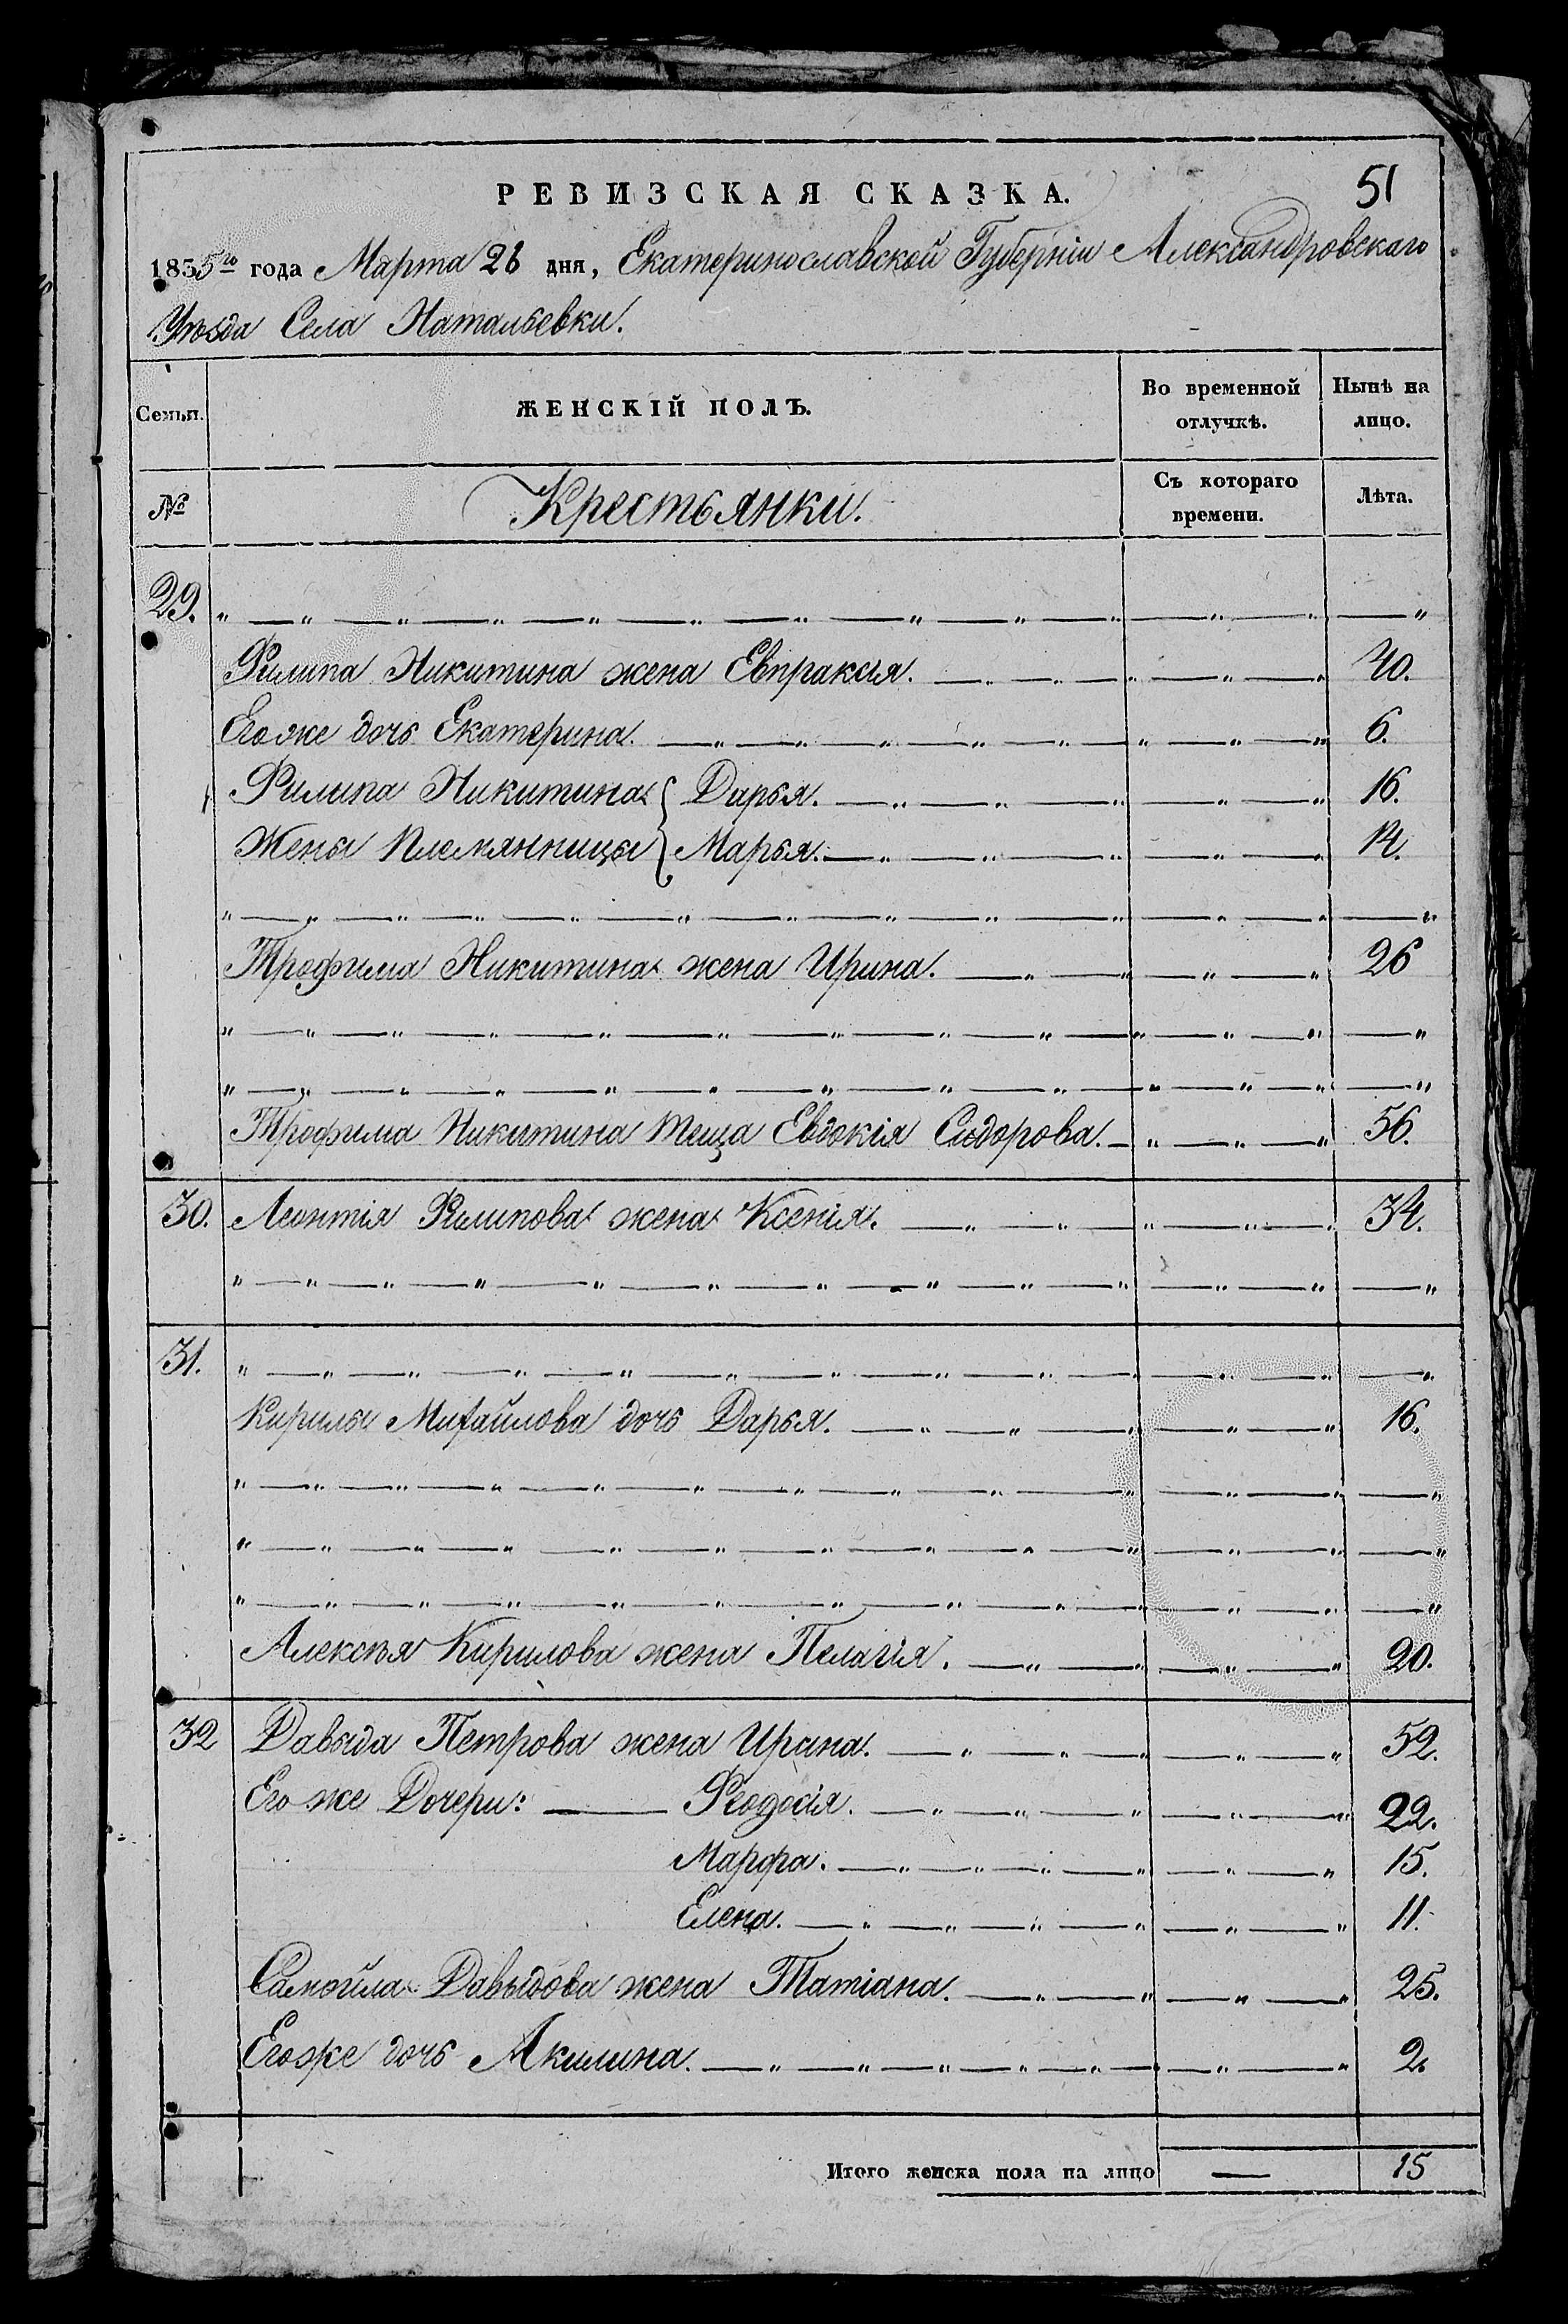 РЕВИЗСКАЯ СКАЗКА. 51
1855го года Марта 26 дня, Екатеринославской Губерніи Александровскаго
Уѣзда Села Натальевки.
Семьи. ЖЕНСКІЙ ПОЛЪ. Во временной отлучкѣ. Нынѣ на лицо.
№ Крестьянки. Съ котораго времени. Лѣта.
29.
Филипа Никитина жена Евпраксія. 40.
Егоже дочь Екатерина. 6.
Филипа Никитина { Дарья. 16.
Жены племянницы { Марья. 14.
Трофима Никитина жена Ирина. 26
Трофима Никитина теща Евдокія Сидорова. 56.
30. Леонтія Филипова жена Ксенія. 34.
31.
Кирилы Михайлова дочь Дарья. 16.
Алексѣя Кирилова жена Пелагія. 20.
32 Давыда Петрова жена Ирина. 52.
Его же Дочери: Феодосія. 22.
Марфа. 15.
Елена. 11.
Самойла Давыдова жена Татіана. 25.
Егоже дочь Акилина. 2.
Итого женска пола на лицо — 15